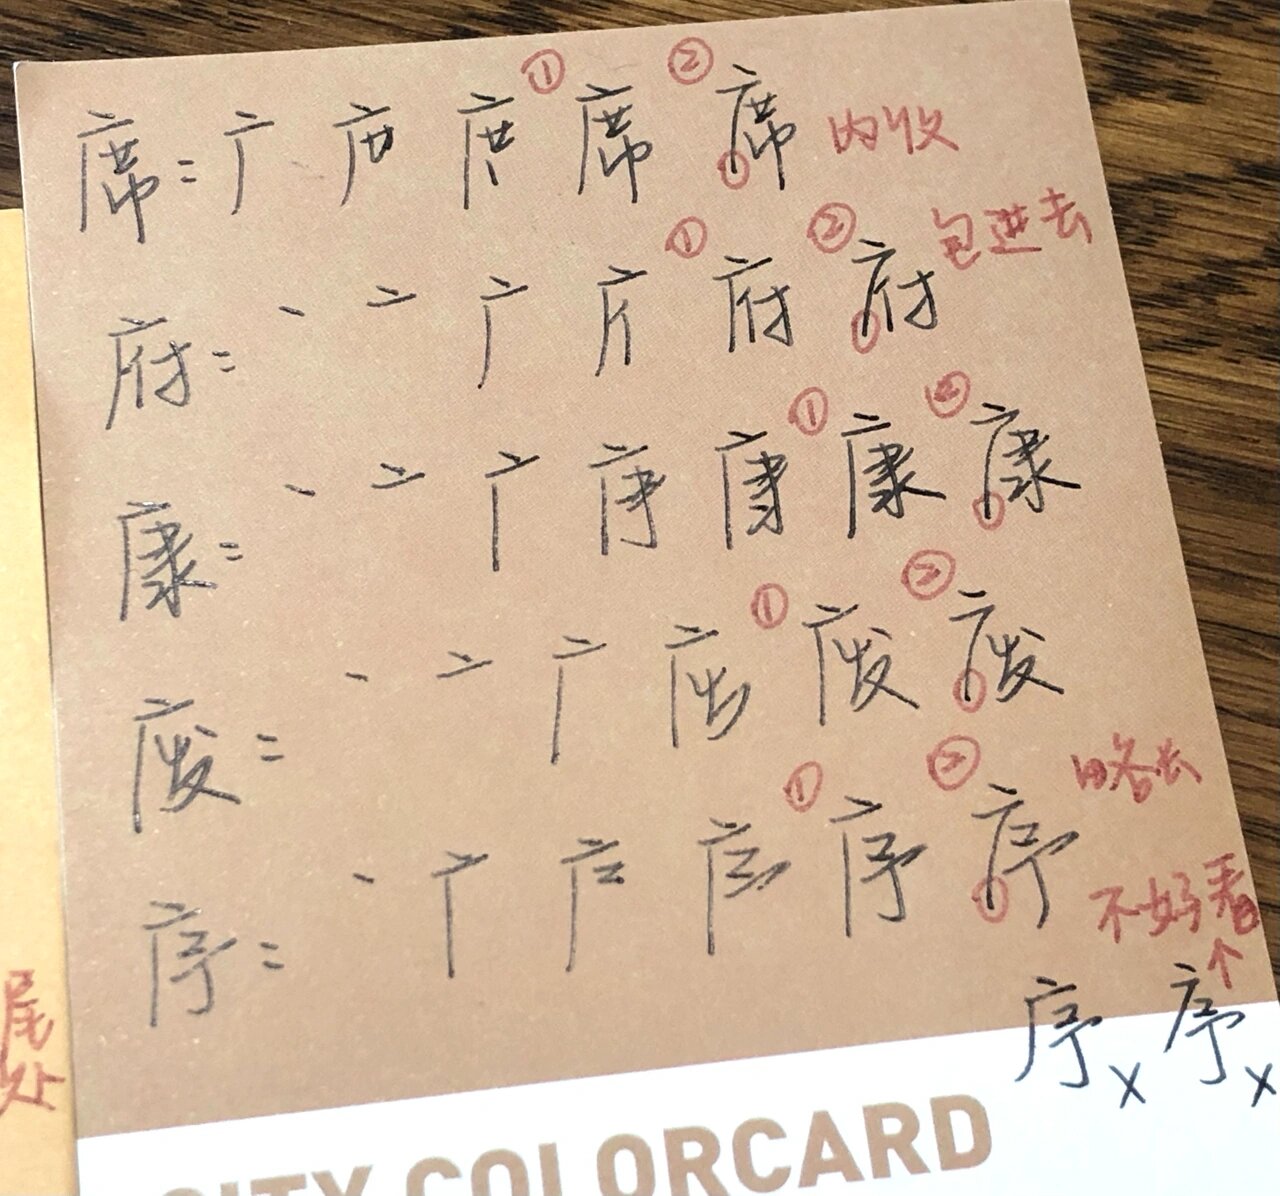 席= 广 ① 席 ② 席 内收
府= 丶 亠 广 ① 府 ② 府 包进去
康= 丶 亠 广 ① 康 ② 康
废= 丶 亠 广 ① 废 ② 废
序= 丶 广 ① 序 ② 序 略去
不好看
↑
序x 序x
尾处
CITY COLORCARD